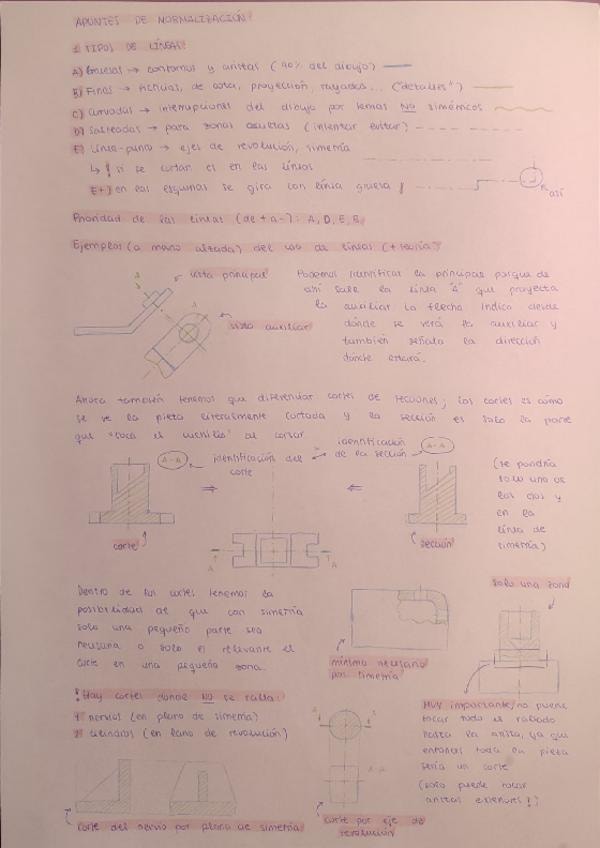 APUNTES DE NORMALIZACIÓN
1. TIPOS DE LÍNEAS:
A) Gruesas → contornos y aristas (90% del dibujo)
B) Finas → ficticias, de cota, proyección, rayados... ("detalles")
C) Curvadas → interrupciones del dibujo por temas NO simétricos
D) Salteadas → para zonas ocultas (intentar evitar)
E) Línea-punto → ejes de revolución, simetría
↳ ! si se cortan es en las líneas
E+) en las esquinas se gira con línea gruesa !
así
Prioridad de las líneas (de + a -): A, D, E, B
Ejemplos (a mano alzada) del uso de líneas (+ teoría)
vista principal
A
A
vista auxiliar
Podemos identificar la principal porque de
ahí sale la línea "A" que proyecta
la auxiliar. La flecha indica desde
dónde se verá la auxiliar y
también señala la dirección
dónde estará.
Ahora también tenemos que diferenciar cortes de secciones; los cortes es cómo
se ve la pieza literalmente cortada y la sección es solo la parte
que "toca el cuchillo" al cortar
A-A
identificación del
corte
identificación
de la sección
A-A
corte
A
A
sección
(se pondría
solo uno de
los dos y
en la
línea de
simetría)
Dentro de los cortes tenemos la
posibilidad de que con simetría
solo una pequeña parte sea
necesaria o solo es relevante el
corte en una pequeña zona.
mínimo necesario
por simetría
solo una zona
! Hay cortes donde NO se ralla:
1) nervios (en plano de simetría)
2) cilindros (en plano de revolución)
MUY importante, no puede
tocar todo el rallado
hasta la arista, ya que
entonces toda la pieza
sería un corte
(solo puede tocar
aristas exteriores!)
A
A
A-A
corte del nervio por plano de simetría
corte por eje de
revolución